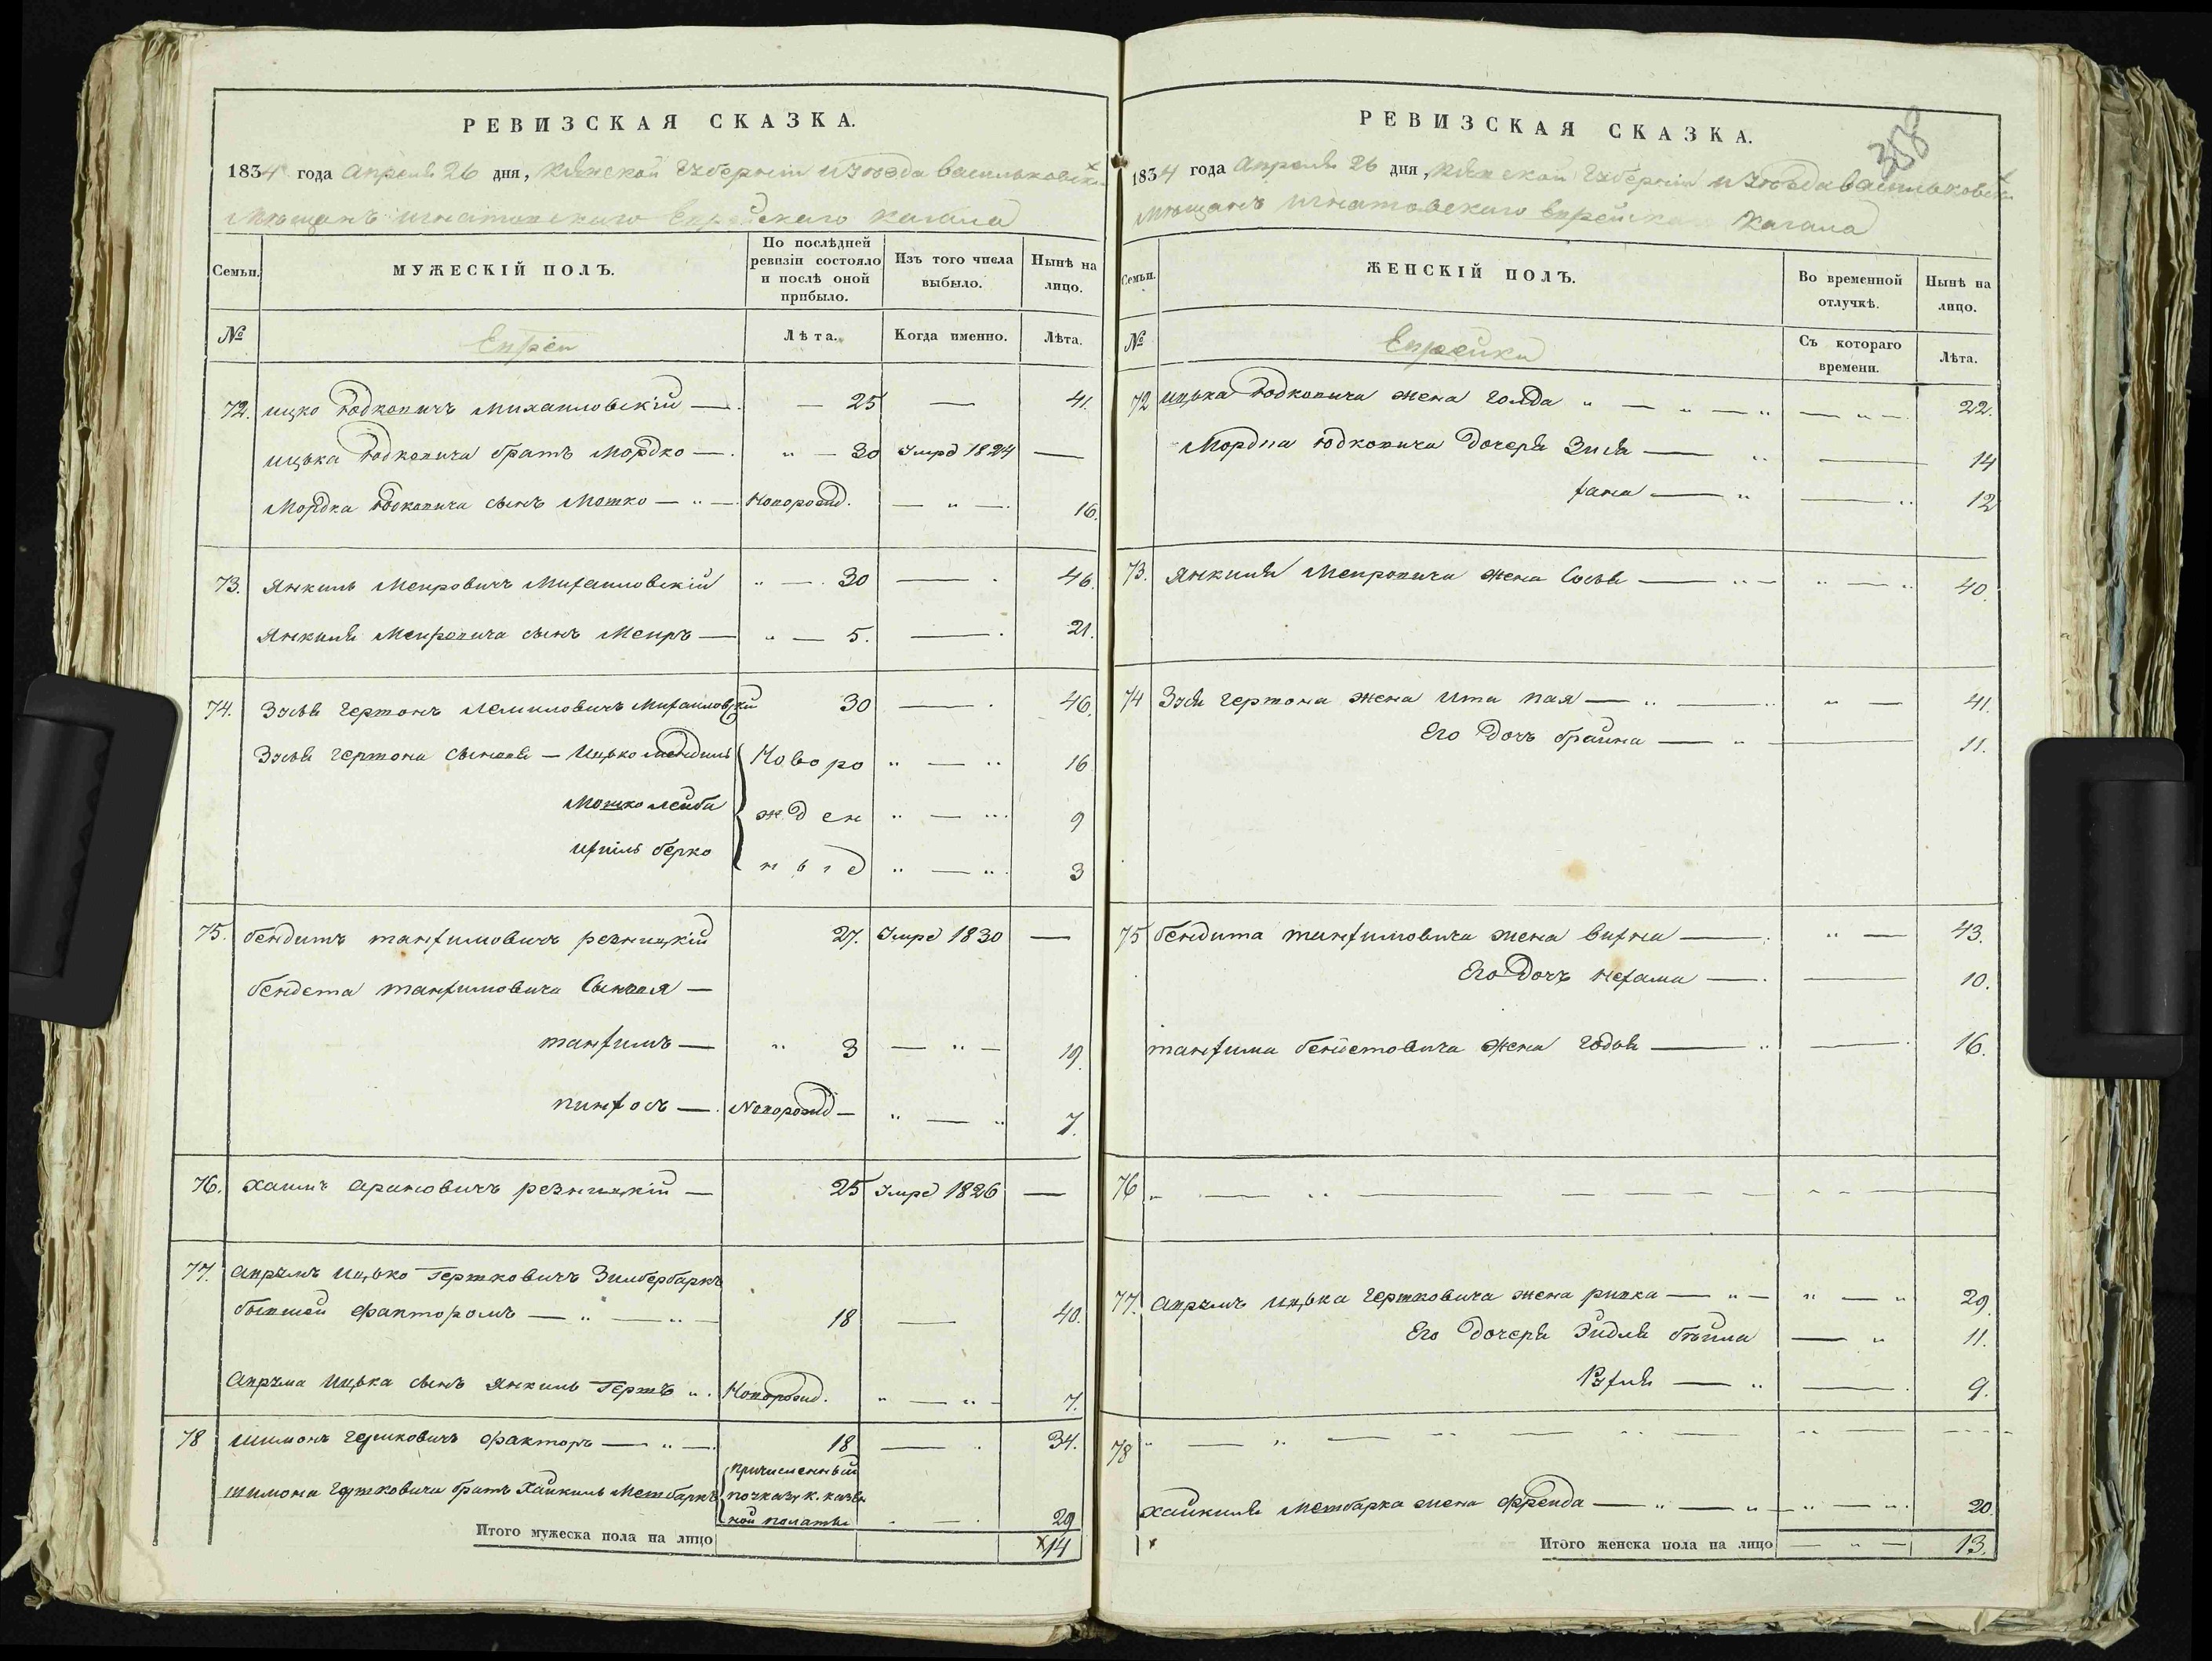 РЕВИЗСКАЯ СКАЗКА.
1834 года Апреля 26 дня, Кіевской Губерніи и Уѣзда Васильковска
Мѣщанъ Игнатовского Еврейскаго Кагала
Семьи.
МУЖЕСКІЙ ПОЛЪ.
По послѣдней ревизіи состояло и послѣ оной прибыло.
Изъ того числа выбыло.
Нынѣ на лицо.
№
Евреи
Лѣта.
Когда именно.
Лѣта.
72. Ицко Юдковичъ Михаиловскій — 25 — 41.
Ицька Юдковича братъ Мордко — 30 Умрѣ 1824 —
Мордка Юдковича сынъ Мошко — Новорожд. — 16.
73. Янкиль Меировичъ Михаиловскій 30 — 46.
Янкиля Меировича сынъ Меиръ — 5. — 21.
74. Зусь Гершонъ Михаиловскій 30 — 46.
Гершона сыновя — Ицько Мендиль Новоро — 16
Мошко Лейба жден — 9
Ихиль Берко ные — 3
75. Бендитъ Танхимовичъ Резницкій 27. Умре 1830 —
Бендета Танхимовича Сыновя —
Танхимъ — 3 — 19.
Пинхосъ — Новорожд — 7.
76. Хаимъ Ароновичъ Резницкій — 25 Умре 1826 —
77. Аврумъ Ицько Гершковичъ Зилбербаркъ
бывшой Факторомъ — 18 — 40.
Аврума Ицька сынъ Янкиль Гершъ Новорожд. — 7.
78 Шимонъ Гершковичъ Факторъ — 18 — 34.
Шимона Гершковича братъ Хаикиль Метбаркъ причисленный по указу к. казенной палаты — 29
Итого мужеска пола на лицо 14
РЕВИЗСКАЯ СКАЗКА.
1834 года Апреля 26 дня, Кіевской Губерніи и Уѣзда Васильковска
Мѣщанъ Игнатовского Еврейскаго Кагала
Семьи.
ЖЕНСКІЙ ПОЛЪ.
Во временной отлучкѣ.
Нынѣ на лицо.
№
Еврейки
Съ котораго времени.
Лѣта.
72 Ицька Юдковича жена Голда — 22.
Мордка Юдковича дочеря Зися — 14
Хана — 12
73. Янкиля Меировича жена Сося — 40.
74 Зуся Гершона жена Ита Хая — 41.
Его дочъ Браина — 11.
75 Бендита Танхимовича жена Вихна — 43.
Его Дочъ Нехама — 10.
Танхима Бендетовича жена Годя — 16.
76 —
77. Аврумъ Ицька Гершковича жена Ривка — 29.
Его Дочеря Эйдля Бейла — 11.
Рухля — 9.
78 —
Хаикиля Метбарка жена Фреида — 20.
Итого женска пола на лицо — 13.